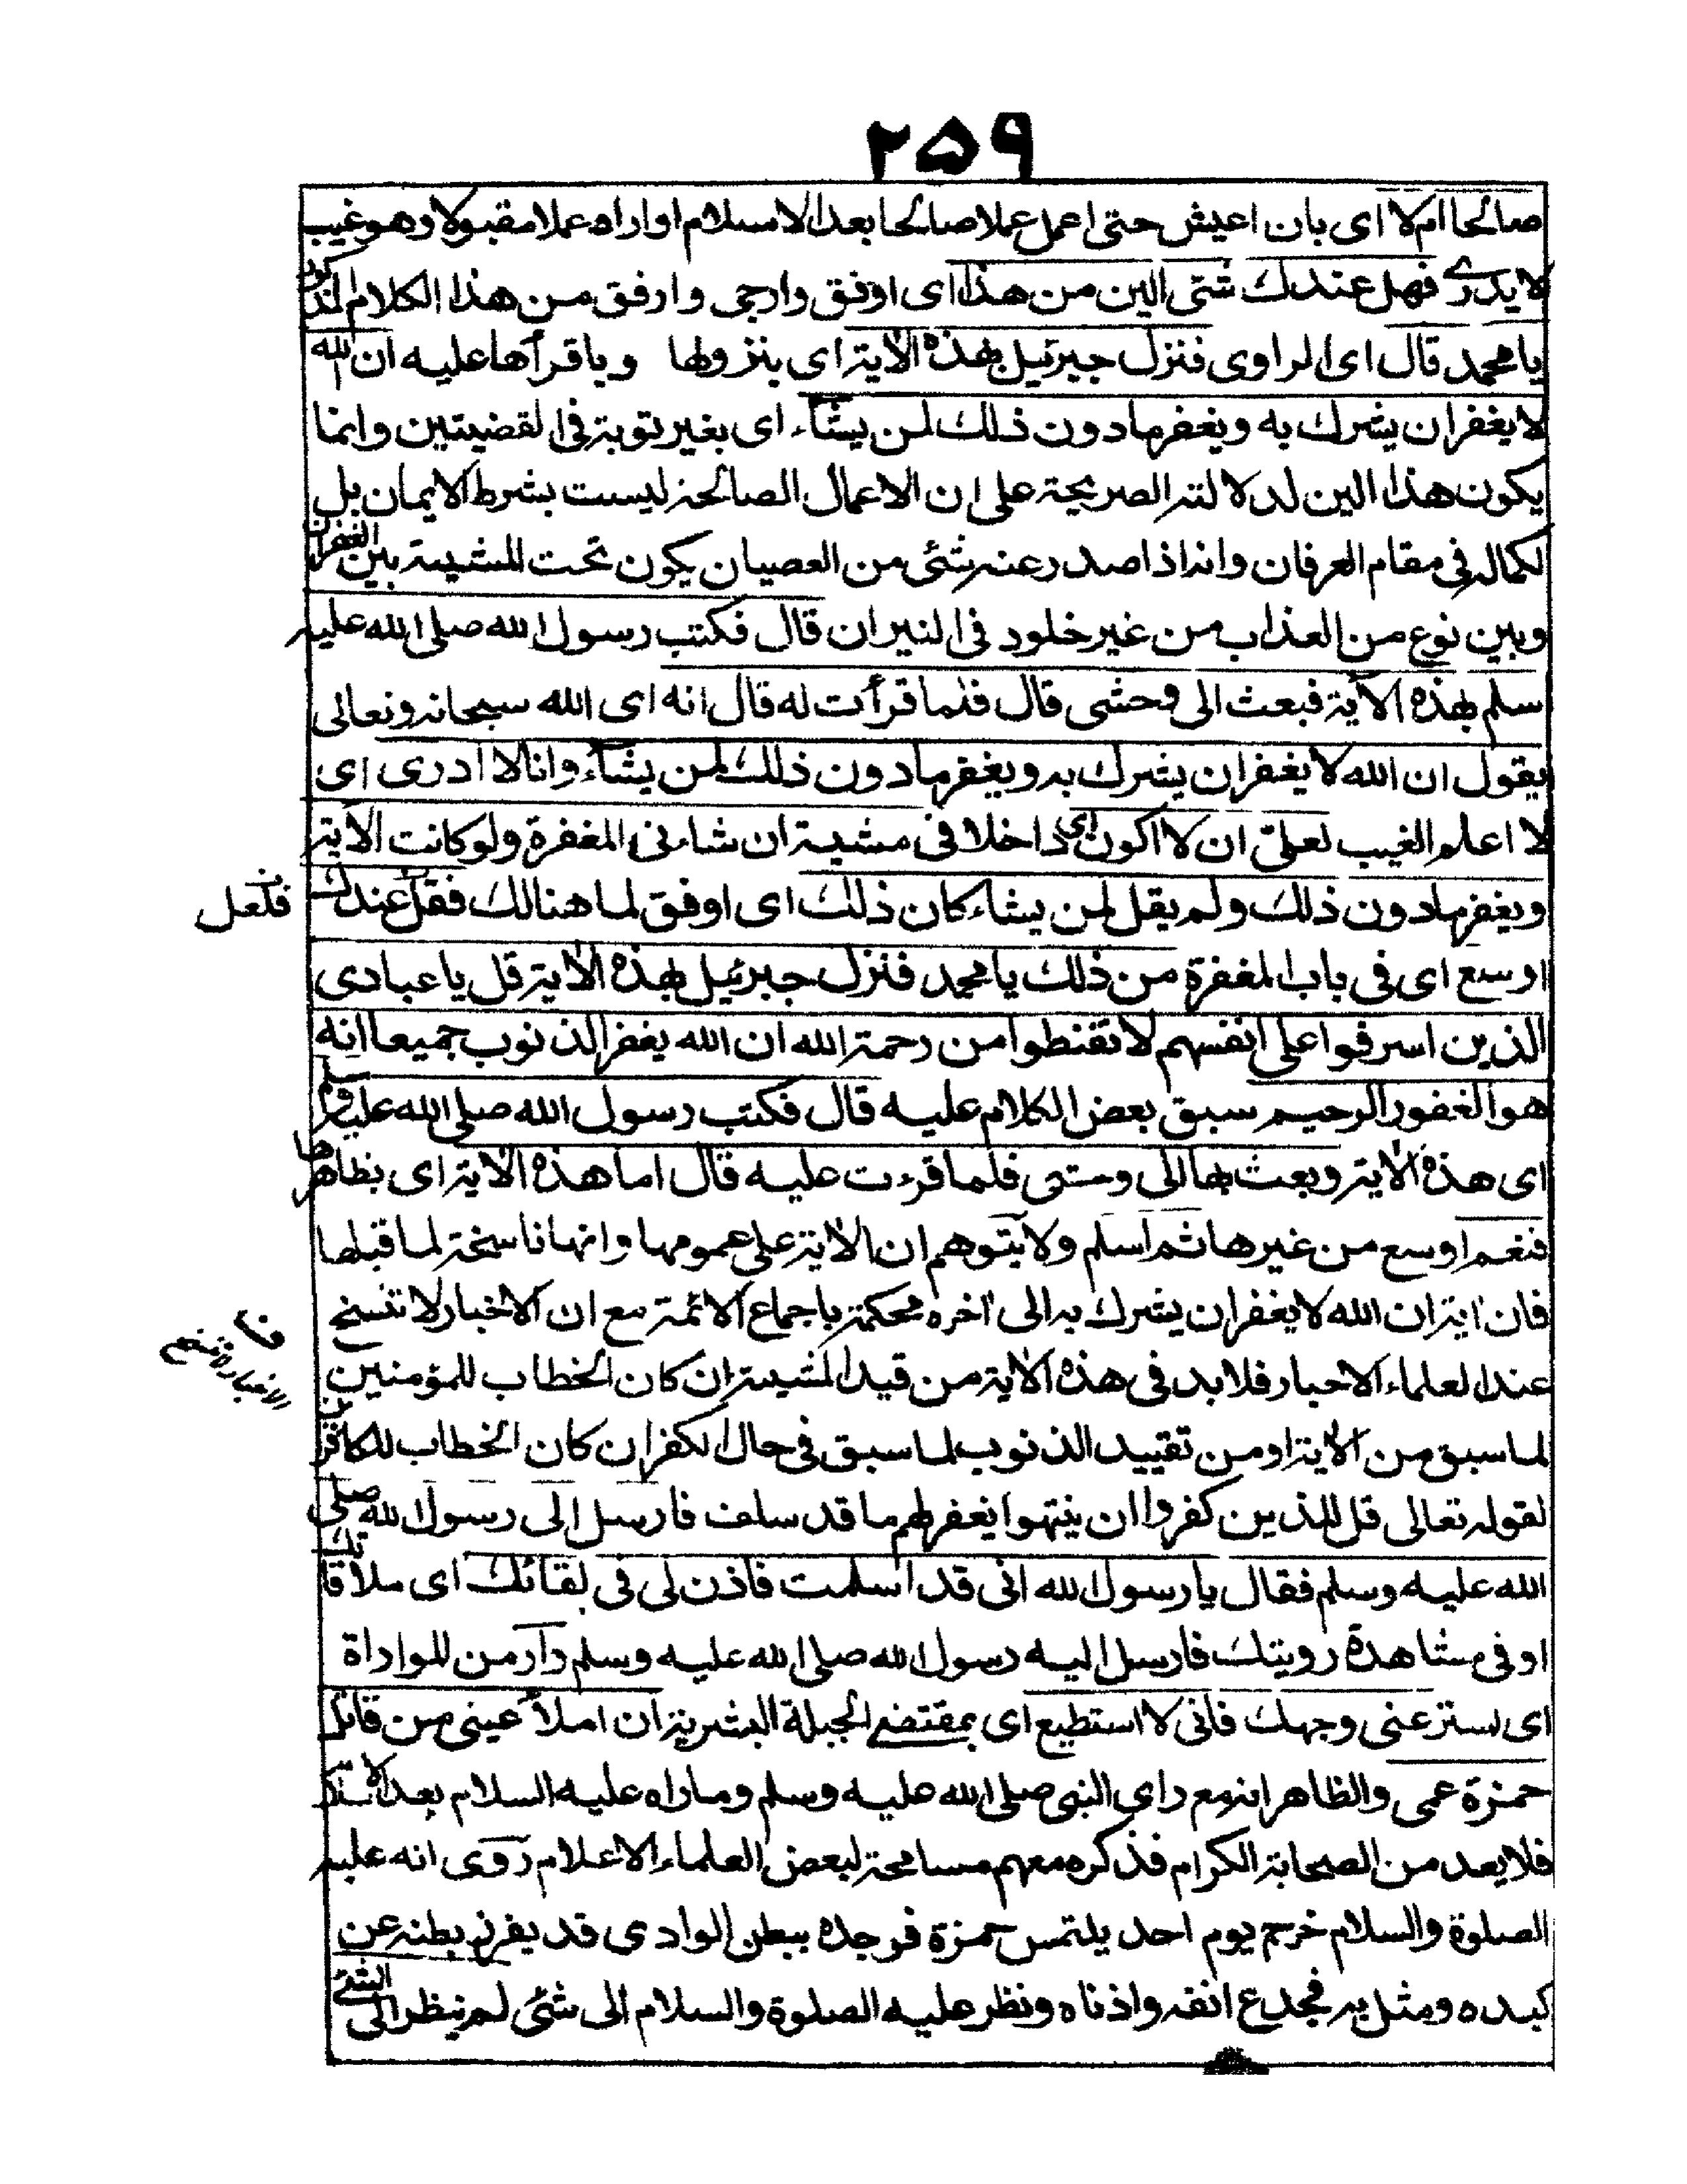 ٢٥٩
صالحا ام لا اى بان اعيش حتى اعمل عملا صالحا بعد الاسلام او اراه عملا مقبولا وهو غيب
لا يدرے فهل عندك شئى الين من هذا اى اوفق وارجى وارفق من هذا الكلام المذكور
يا محمد قال اى الراوى فنزل جبرئيل بهذه الآية اى بنزولها وباقرأها عليه ان الله
لا يغفر ان يشرك به ويغفر ما دون ذلك لمن يشآء اى بغير توبة فى القضيتين وانما
يكون هذا الين لدلالته الصريحة على ان الاعمال الصالحة ليست بشرط الايمان بل
لكماله فى مقام العرفان وانه اذا صدر عنه شئى من العصيان يكون تحت المشيية بين الغفران
وبين نوع من العذاب من غير خلود فى النيران قال فكتب رسول الله صلى الله عليه
سلم بهذه الآية فبعث الى وحشى قال فلما قرأت له قال انه اى الله سبحانه وتعالى
يقول ان الله لا يغفر ان يشرك به ويغفر ما دون ذلك لمن يشآء وانا لا ادرى اى
لا اعلم الغيب لعلى ان لا اكون اى داخلا فى مشية ان شاء نى المغفرة ولو كانت الآية
ويغفر ما دون ذلك ولم يقل لمن يشاء كان ذلك اى اوفق لما هنالك فقل عندك
فلعل
اوسع اى فى باب المغفرة من ذلك يا محمد فنزل جبرئيل بهذه الآية قل يا عبادى
الذين اسرفوا على انفسهم لا تقنطوا من رحمة الله ان الله يغفر الذنوب جميعا انه
هو الغفور الرحيم سبق بعض الكلام عليه قال فكتب رسول الله صلى الله عليه وسلم
اى هذه الآية وبعث بها الى وحشى فلما قرءت عليه قال اما هذه الآية اى بظاهرها
فنعم اوسع من غيرها ثم اسلم ولا يتوهم ان الآية على عمومها وانها ناسخة لما قبلها
فان اية ان الله لا يغفر ان يشرك به الى اخره محكمة باجماع الائمة مع ان الاخبار لا تنسخ
فا
الاخبار لا تنسخ
عند العلماء الاحبار فلا بد فى هذه الآية من قيد المشيية ان كان الخطاب للمؤمنين
لما سبق من الآية او من تقييد الذنوب لما سبق فى حال الكفر ان كان الخطاب للكافرين
لقوله تعالى قل للذين كفروا ان ينتهوا يغفر لهم ما قد سلف فارسل الى رسول الله صلى
الله عليه وسلم فقال يا رسول الله انى قد اسلمت فاذن لى فى لقائك اى ملاقاتك
او فى مشاهدة رويتك فارسل اليه رسول الله صلى الله عليه وسلم دار من المواراة
اى استر عنى وجهك فانى لا استطيع اى بمقتضے الجبلة البشرية ان املأ عينى من قاتل
حمزة عمى والظاهر انه مع راى النبى صلى الله عليه وسلم وما راه عليه السلام بعد الاسلام
فلا يعد من الصحابة الكرام فذكره معهم مسامحة لبعض العلماء الاعلام روى انه عليه
الصلوة والسلام خرج يوم احد يلتمس حمزة فوجده ببطن الوادى قد بقر بطنه عن
كبده ومثل به فجدع انفه واذناه ونظر عليه الصلوة والسلام الى شئى لم ينظر الى الشئے